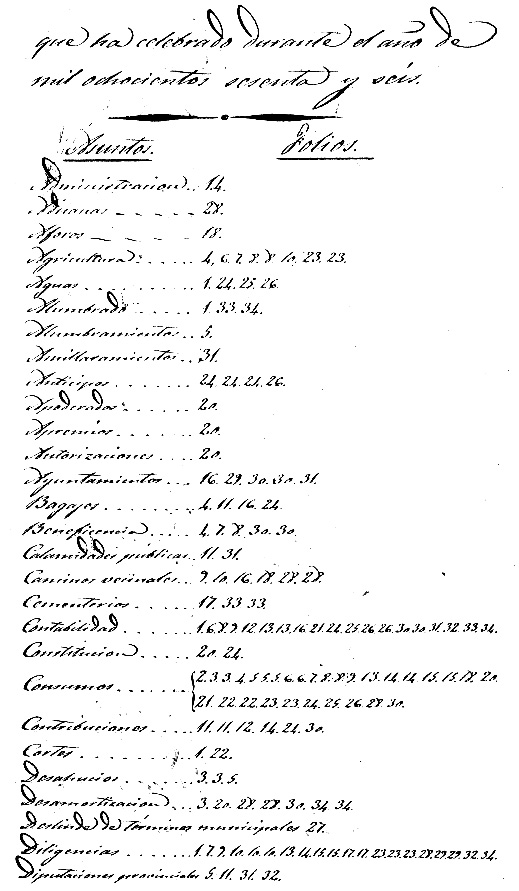 que ha celebrado durante el año de
mil ochocientos sesenta y seis.
Asuntos. Folios.
Administracion.. 14.
Aduanas _ _ _ _ _ 28.
Aforos _ _ _ _ _ 18.
Agricultura. . . . . 4. 6. 7. 8. 8. 10. 23. 23.
Aguas . . . . . . . 1. 24. 25. 26.
Alumbrado . . . . . 1. 33. 34.
Alumbramientos . . 5.
Amillaramientos . . 31.
Anticipos . . . . . . 24. 24. 24. 26.
Apoderados . . . . . 20.
Apremios . . . . . . 20.
Autorizaciones . . . 20.
Ayuntamientos . . . 16. 29. 30. 30. 31.
Bagajes . . . . . . 4. 11. 16. 24.
Beneficencia . . . . 4. 7. 8. 30. 30.
Calamidades públicas.. 11. 31.
Caminos vecinales . . 9. 10. 16. 18. 28. 28.
Cementerios . . . . . 17. 33. 33.
Contabilidad . . . . . 1. 6. 8. 9. 12. 13. 13. 16. 21. 24. 25. 26. 26. 30. 30. 31. 32. 33. 34.
Constitucion . . . . . 20. 24.
Consumos . . . . . . { 2. 3. 3. 4. 5. 5. 5. 6. 6. 7. 8. 8. 9. 13. 14. 14. 15. 15. 18. 20.
21. 22. 22. 23. 23. 24. 25. 26. 28. 30.
Contribuciones . . . . 11. 11. 12. 14. 24. 30.
Cortes . . . . . . . . 1. 22.
Desahucios . . . . . . 3. 3. 5.
Desamortizacion . . . 3. 20. 28. 28. 30. 34. 34.
Deslinde de términos municipales 27.
Diligencias . . . . . . 1. 7. 9. 10. 10. 10. 13. 14. 15. 15. 17. 17. 23. 23. 23. 28. 29. 29. 32. 34.
Diputaciones provinciales 5. 11. 31. 32.